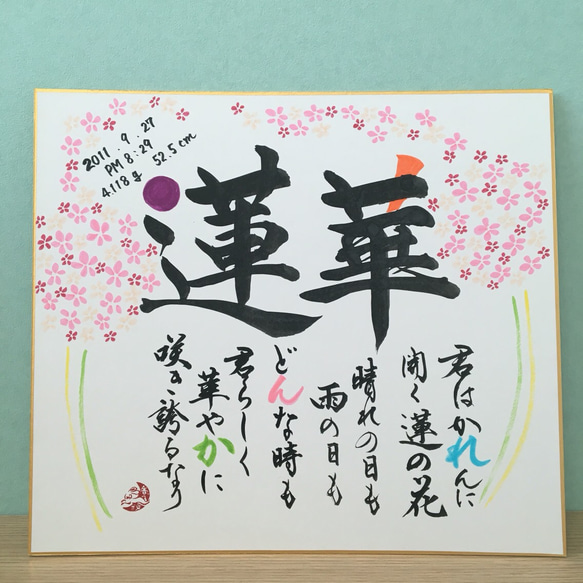 2011.9.27
PM 8:29
4.118g 52.5cm
華蓮
君はかれんに
開く蓮の花
晴れの日も
雨の日も
どんな時も
君らしく
華やかに
咲き誇るなり